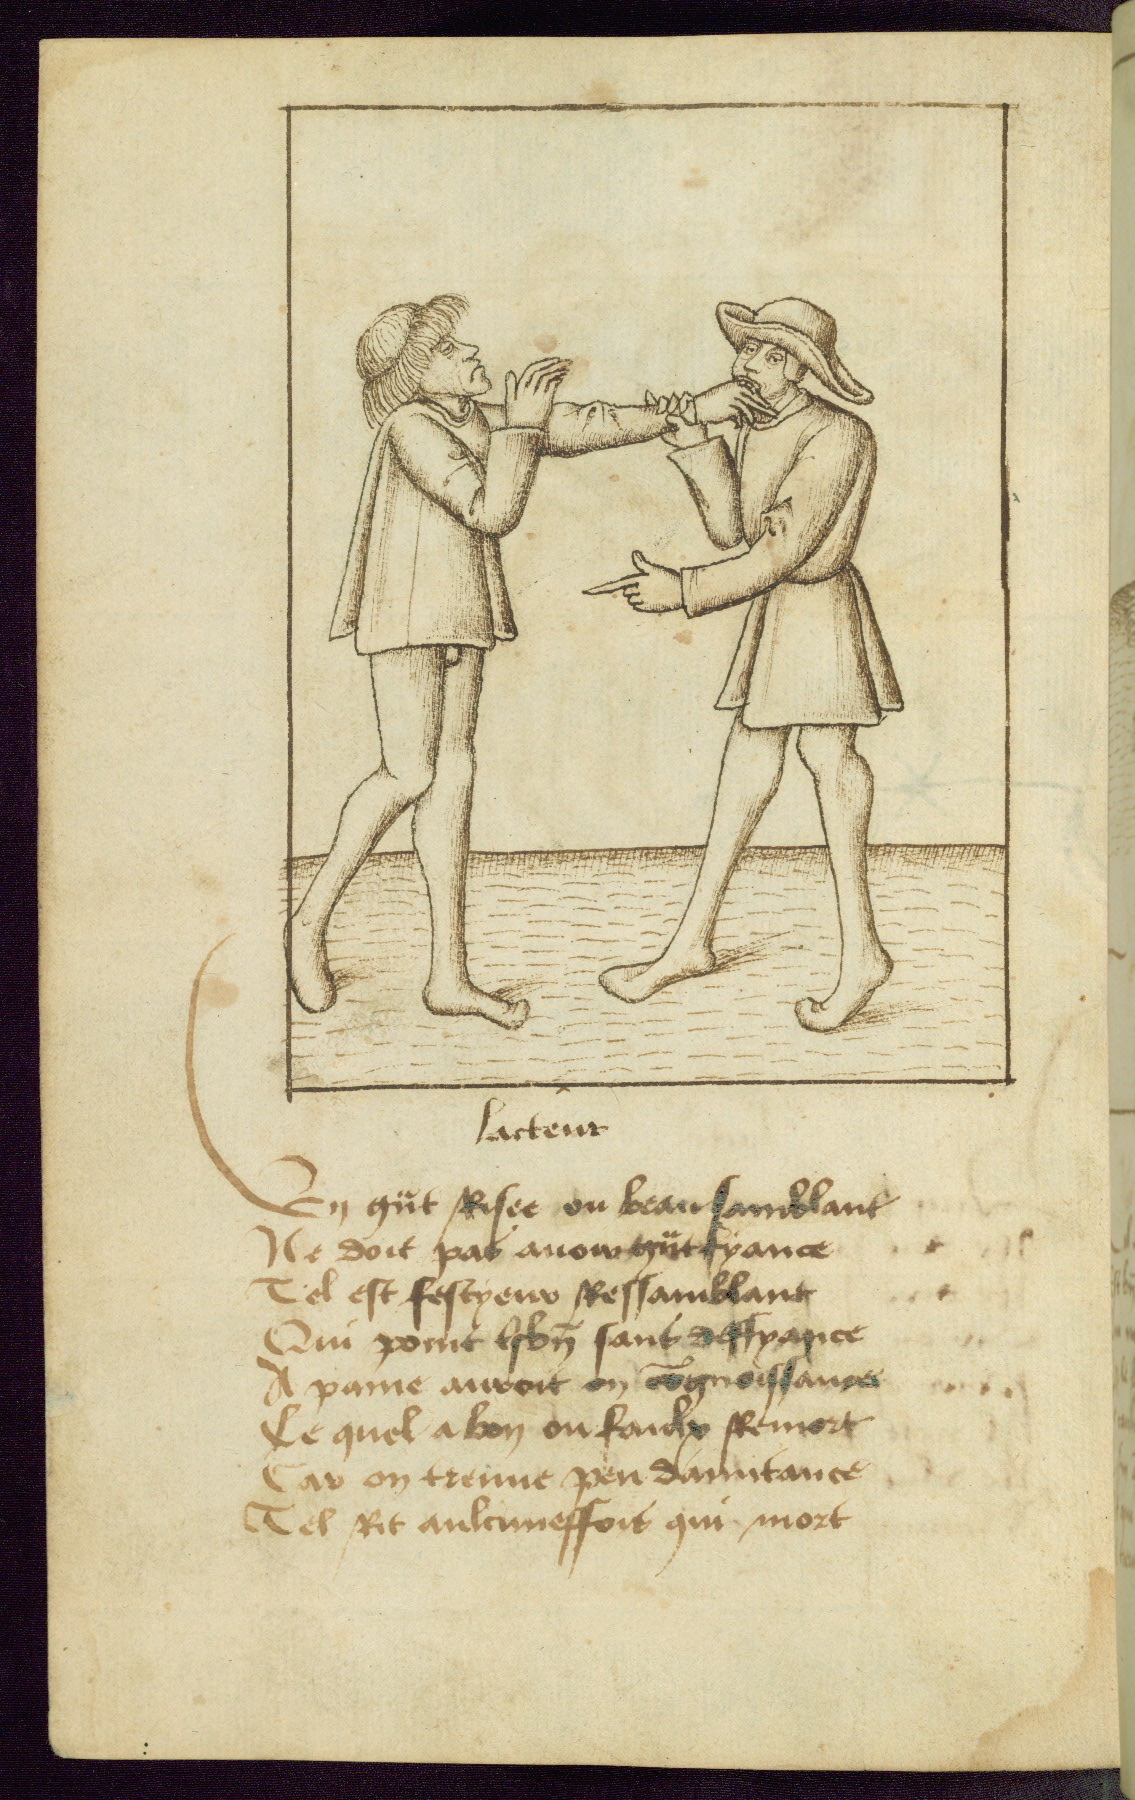 lacteur
En gñt Risee ou beau samblant
Ne doit pas auoir gñt fyance
Tel est festyeur Ressamblant
Qui point sans deffyance
A paine auroit on cognoissance
Le quel a bon ou faulx Remort
Car on treuue peu damitance
Tel Rit aulcuneffois qui mort